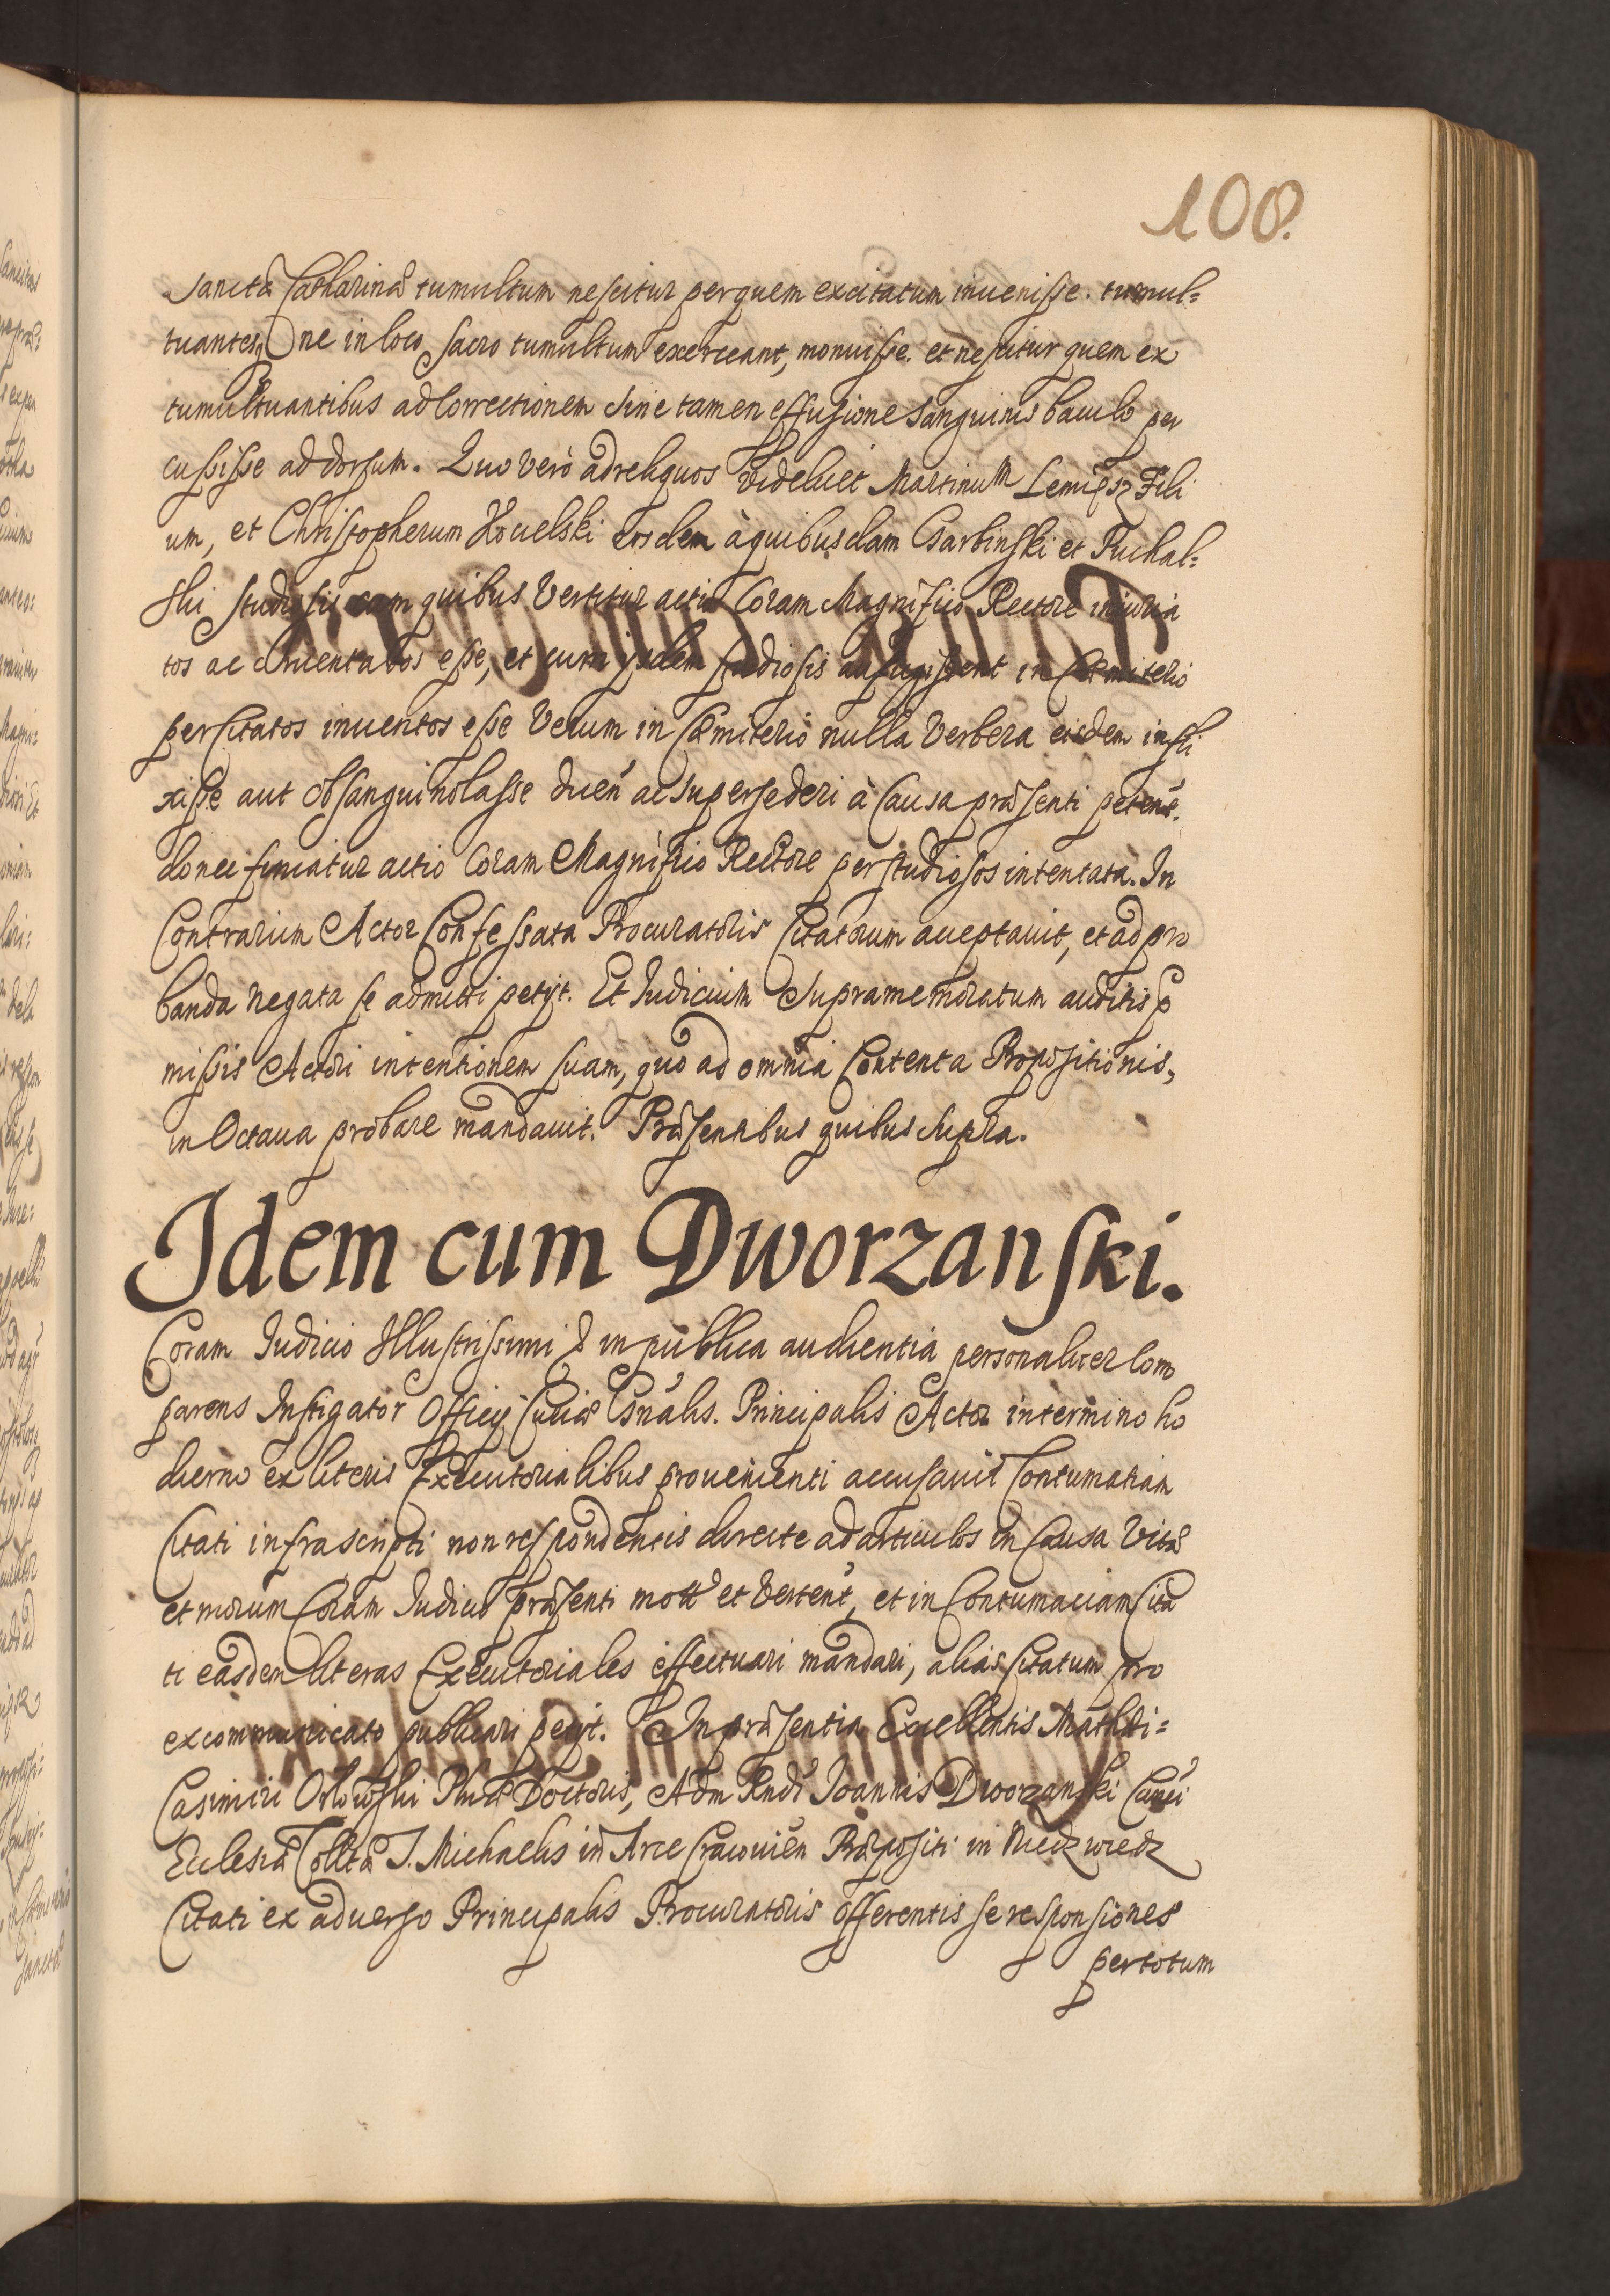 108.
Sanctæ Catharinæ tumultum nescitur per quem excitatum inuenisse. tumul=
tuantesq ne in loco sacro tumultum exerceant, monuisse. et nescitur quem ex
tumultuantibus ad Correctionem sine tamen effusione sanguinis baculo per
cussisse ad dorsum. Quo verò ad reliquos Videlicet Martinum Lemiesz Fili
um, et Christopherum Kouelski eosdem à quibusdam Garbinski et Puchal=
ski studiosis cum quibus Vertitur actio Coram Magnifico Rectore iniuria
tos ac cruentatos esse, et cum ijsdem studiosis in Cœmiterio
per Citatos inuentos esse Verum in Cœmiterio nulla Verbera eisdem infli
xisse aut obsanguinolasse ducen ac supersederi à Causa præsenti peten.
donec finiatur actio Coram Magnifico Rectore per studiosos intentata. In
Contrarium Actor Confessata Procuratoris Citatorum acceptauit, et ad pro
banda negata se admitti petijt. Et Iudicium Supramemoratum auditis p
missis Actori intentionem suam, quo ad omnia Contenta Propositionis,
in Octaua probare mandauit. Præsentibus quibus supra.
Idem cum Dworzanski.
Coram Iudicio Illustrissimi D in publica audientia personaliter Com
parens Instigator Officij Curiæ Gñalis. Principalis Actor in termino ho
dierno ex literis Executorialibus prouenienti accusauit Contumatiam
Citati infrascripti non respondentis directe ad articulos in Causa Vitæ
et morum Coram Iudicio præsenti mott et Verten, et in Contumaciam Cita
ti easdem literas Executoriales effectuari mandari, alias Citatum pro
excommunicato publicari petijt. In præsentia Excellentis Mathæi=
Casimiri Orlowski Phiæ Doctoris, Adm Rndi Ioannis Dworzanski Canci
Ecclesiæ Colltæ S. Michaelis in Arce Cracouien Præpositi in Niedzwiedz
Citati ex aduerso Principalis Procuratoris offerentis se responsiones
per totum